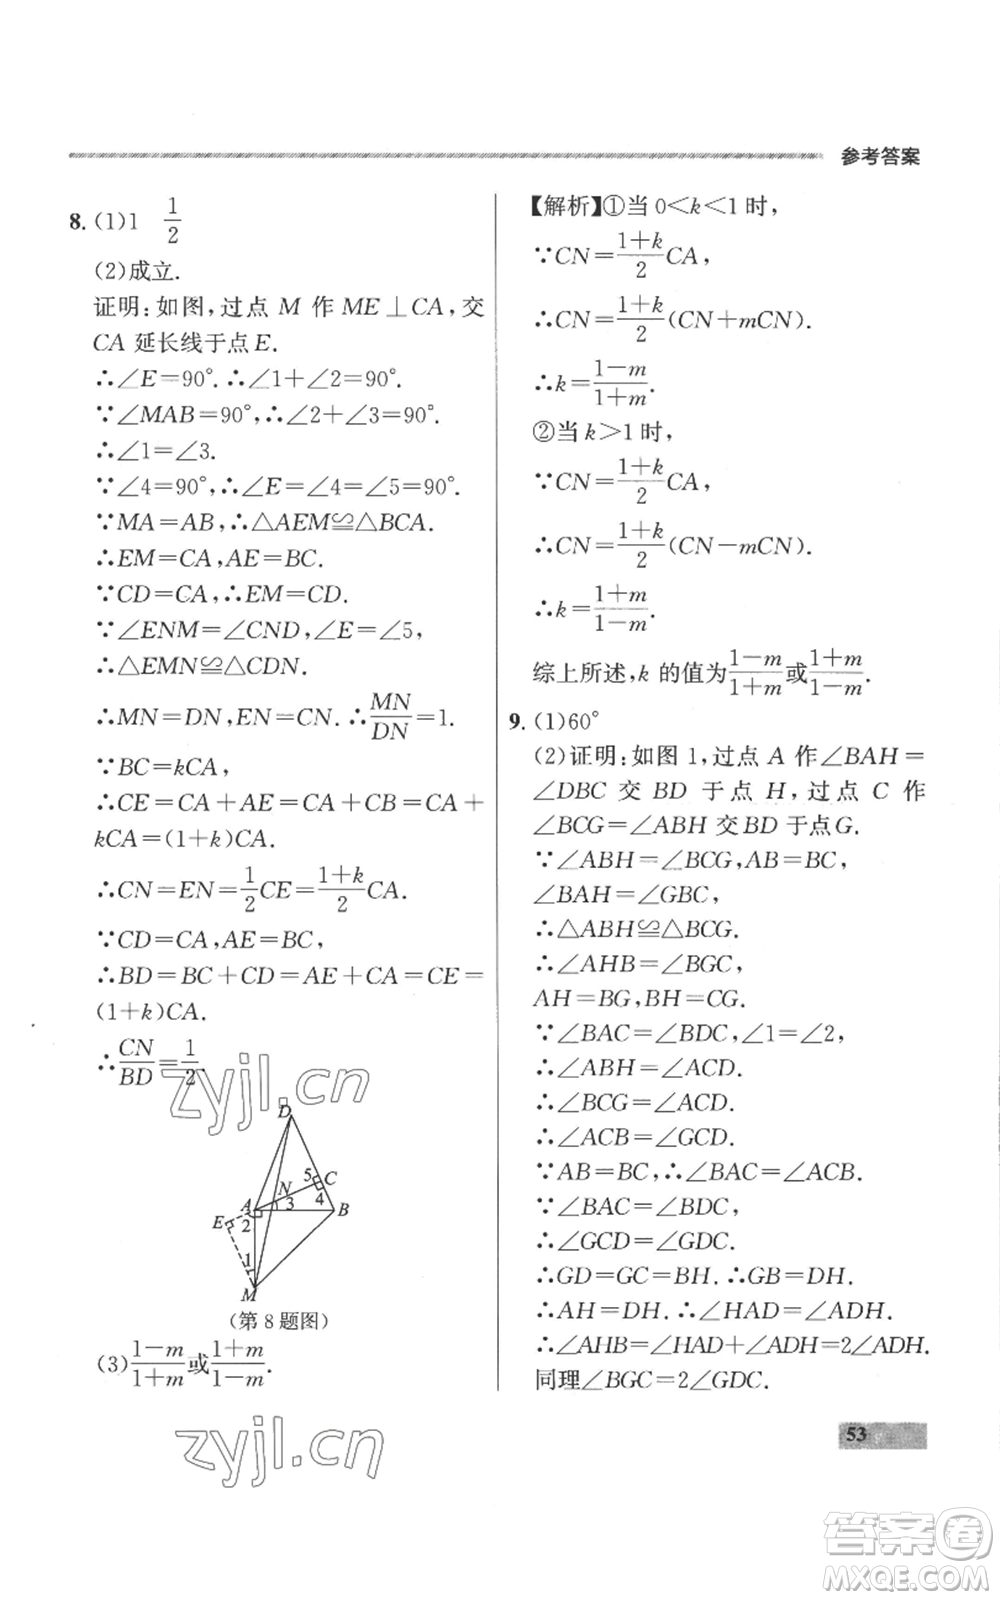 参考答案
8. (1)1 1/2
(2)成立.
证明:如图,过点 M 作 ME⊥CA,交
CA 延长线于点 E.
∴∠E=90°.∴∠1+∠2=90°.
∵∠MAB=90°,∴∠2+∠3=90°.
∴∠1=∠3.
∵∠4=90°,∴∠E=∠4=∠5=90°.
∵MA=AB,∴△AEM≌△BCA.
∴EM=CA,AE=BC.
∵CD=CA,∴EM=CD.
∵∠ENM=∠CND,∠E=∠5,
∴△EMN≌△CDN.
∴MN=DN,EN=CN.∴MN/DN=1.
∵BC=kCA,
∴CE=CA+AE=CA+CB=CA+
kCA=(1+k)CA.
∴CN=EN=1/2CE=(1+k)/2 CA.
∵CD=CA,AE=BC,
∴BD=BC+CD=AE+CA=CE=
(1+k)CA.
∴CN/BD=1/2.
zyjl.cn
D
5 C
N 4
A 3 B
E 2
1
M
(第 8 题图)
(3)(1-m)/(1+m)或(1+m)/(1-m).
zyjl.cn
【解析】①当 0<k<1 时,
∵CN=(1+k)/2 CA,
∴CN=(1+k)/2 (CN+mCN).
∴k=(1-m)/(1+m).
②当 k>1 时,
∵CN=(1+k)/2 CA,
∴CN=(1+k)/2 (CN-mCN).
∴k=(1+m)/(1-m).
综上所述,k 的值为(1-m)/(1+m)或(1+m)/(1-m).
9. (1)60°
(2)证明:如图 1,过点 A 作∠BAH=
∠DBC 交 BD 于点 H,过点 C 作
∠BCG=∠ABH 交BD 于点G.
∵∠ABH=∠BCG,AB=BC,
∠BAH=∠GBC,
∴△ABH≌△BCG.
∴∠AHB=∠BGC,
AH=BG,BH=CG.
∵∠BAC=∠BDC,∠1=∠2,
∴∠ABH=∠ACD.
∴∠BCG=∠ACD.
∴∠ACB=∠GCD.
∵AB=BC,∴∠BAC=∠ACB.
∵∠BAC=∠BDC,
∴∠GCD=∠BDC.
∴GD=GC=BH.∴GB=DH.
∴AH=DH.∴∠HAD=∠ADH.
∴∠AHB=∠HAD+∠ADH=2∠ADH.
同理∠BGC=2∠GDC.
53
答案圈
MXQE.COM